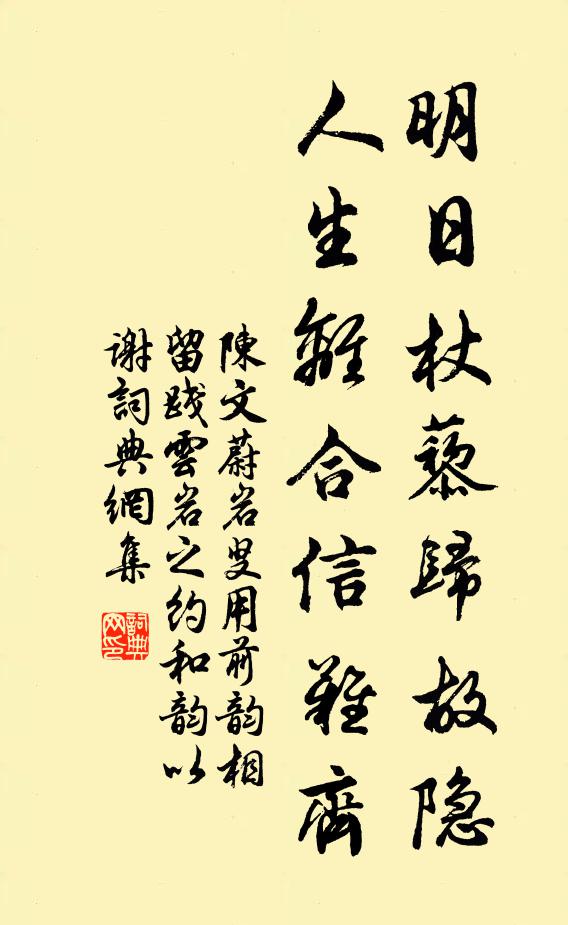 明日杖藜歸故隐
人生離合信難齊
陳文蔚岩叟用前韵相
留践雲岩之約和韵以
谢詞典網集
詞典
网印